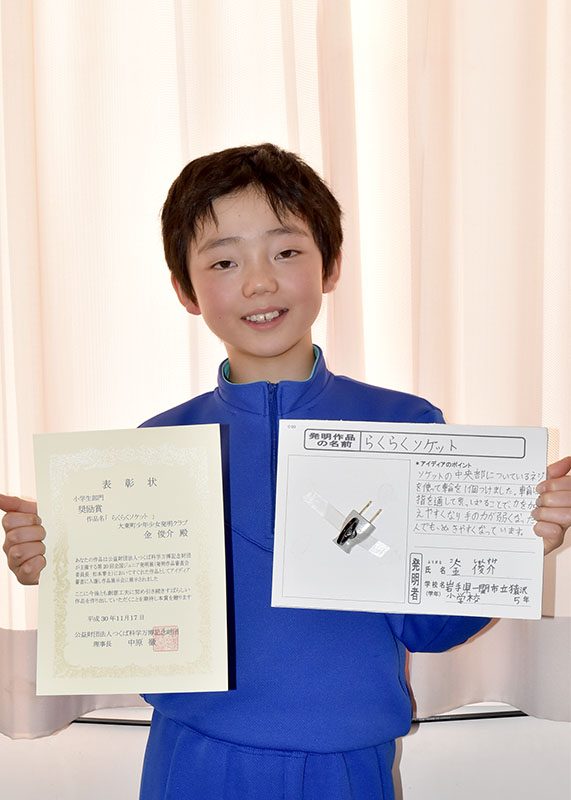 表彰状
小学生部門
奨励賞
作品名「らくらくソケット」
大東町少年少女発明クラブ
金 俊介 殿
あなたの作品は公益財団法人つくば科学万博記念財団
が主催する第20回全国ジュニア発明展(発明作品審査会
においてすぐれた作品としてアイディア
審査に入選し作品展示会に展示されました
ここに今後とも創意工夫に努め引き続きすばらしい
作品を作り出していただくことを期待し本賞を贈ります
平成30年11月17日
公益財団法人つくば科学万博記念財団
理事長 中原 徹
発明作品
の名前
らくらくソケット
●アイディアのポイント
ソケットの中央部についているネジ
を使って車輪を1個つけました。車輪に
指を通して引っぱることで、力をか
えやすくなり手の力が弱くなった
人でもぬきやすくなっています。
発明者
氏名 金 俊介
学校名 岩手県一関市立猿沢
(学年) 小学校 5年